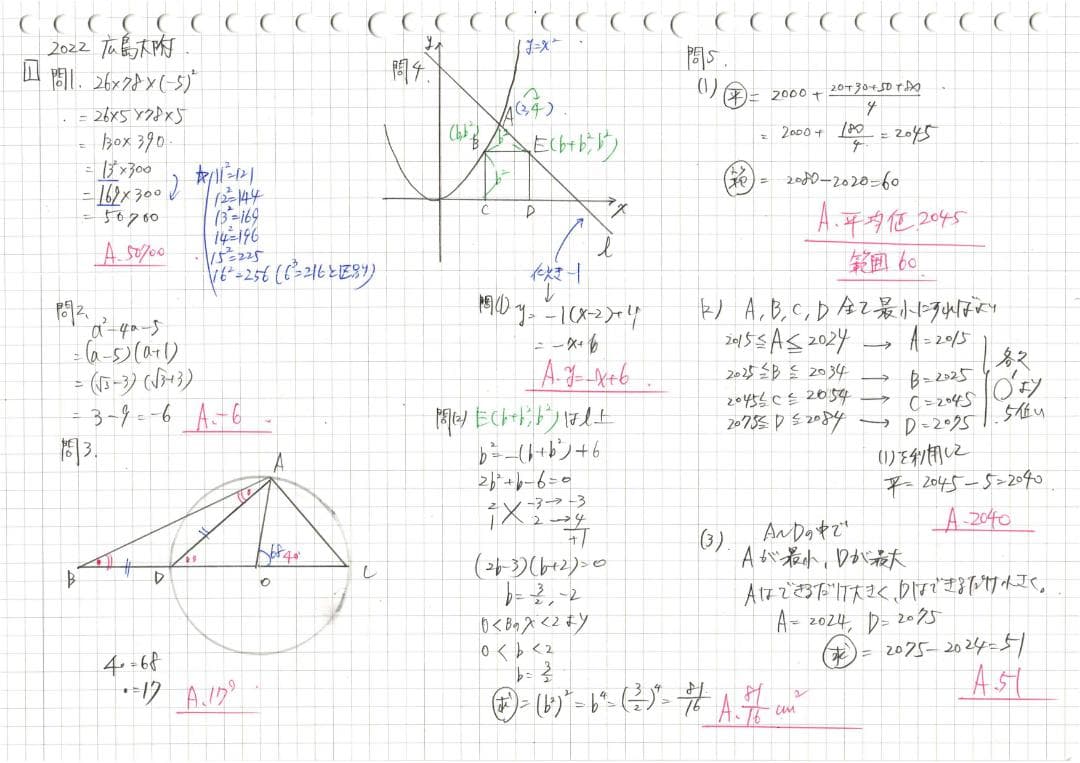 2022 広島大附.
1
問1. 26×78×(-5)²
= 26×5×78×5
= 130×390.
= 13²×300
= 169×300
= 50700
A. 50700
☆ 11²=121
12²=144
13²=169
14²=196
15²=225
16²=256 (6³=216と区別)
問2.
a²-4a-5
= (a-5)(a+1)
= (√3-3)(√3+3)
= 3-9=-6
A. -6
問3.
A
B
D
O
C
68
4•
4•=68
•=17
A. 17°
問4.
y
y=x²
A(2,4)
(b,b²)
B
b²
E(b+b²,b²)
b²
C
D
x
l
傾き-1
問(1)
y=-1(x-2)+4
=-x+6
A. y=-x+6
問(2) E(b+b²,b²)はl上
b²=-(b+b²)+6
2b²+b-6=0
2 -3→-3
1 2→4
+1
(2b-3)(b+2)=0
b=3/2,-2
0<Bのx<2より
0<b<2
b=3/2
求=(b²)²=b⁴=(3/2)⁴=81/16
A. 81/16 cm²
問5.
(1) 平= 2000+(20+30+50+80)/4
= 2000+180/4=2045
範= 2080-2020=60
A. 平均値 2045
範囲 60
(2) A, B, C, D 全て最小にすればよい
2015≦A≦2024 → A=2015
2025≦B≦2034 → B=2025
2045≦C≦2054 → C=2045
2075≦D≦2084 → D=2075
各々
(1)より
5低い
(1)を利用して
平=2045-5=2040
A. 2040
(3). A〜Dの中で
Aが最小, Dが最大
Aはできるだけ大きく、Dはできるだけ小さく。
A=2024, D=2075
求= 2075-2024=51
A. 51